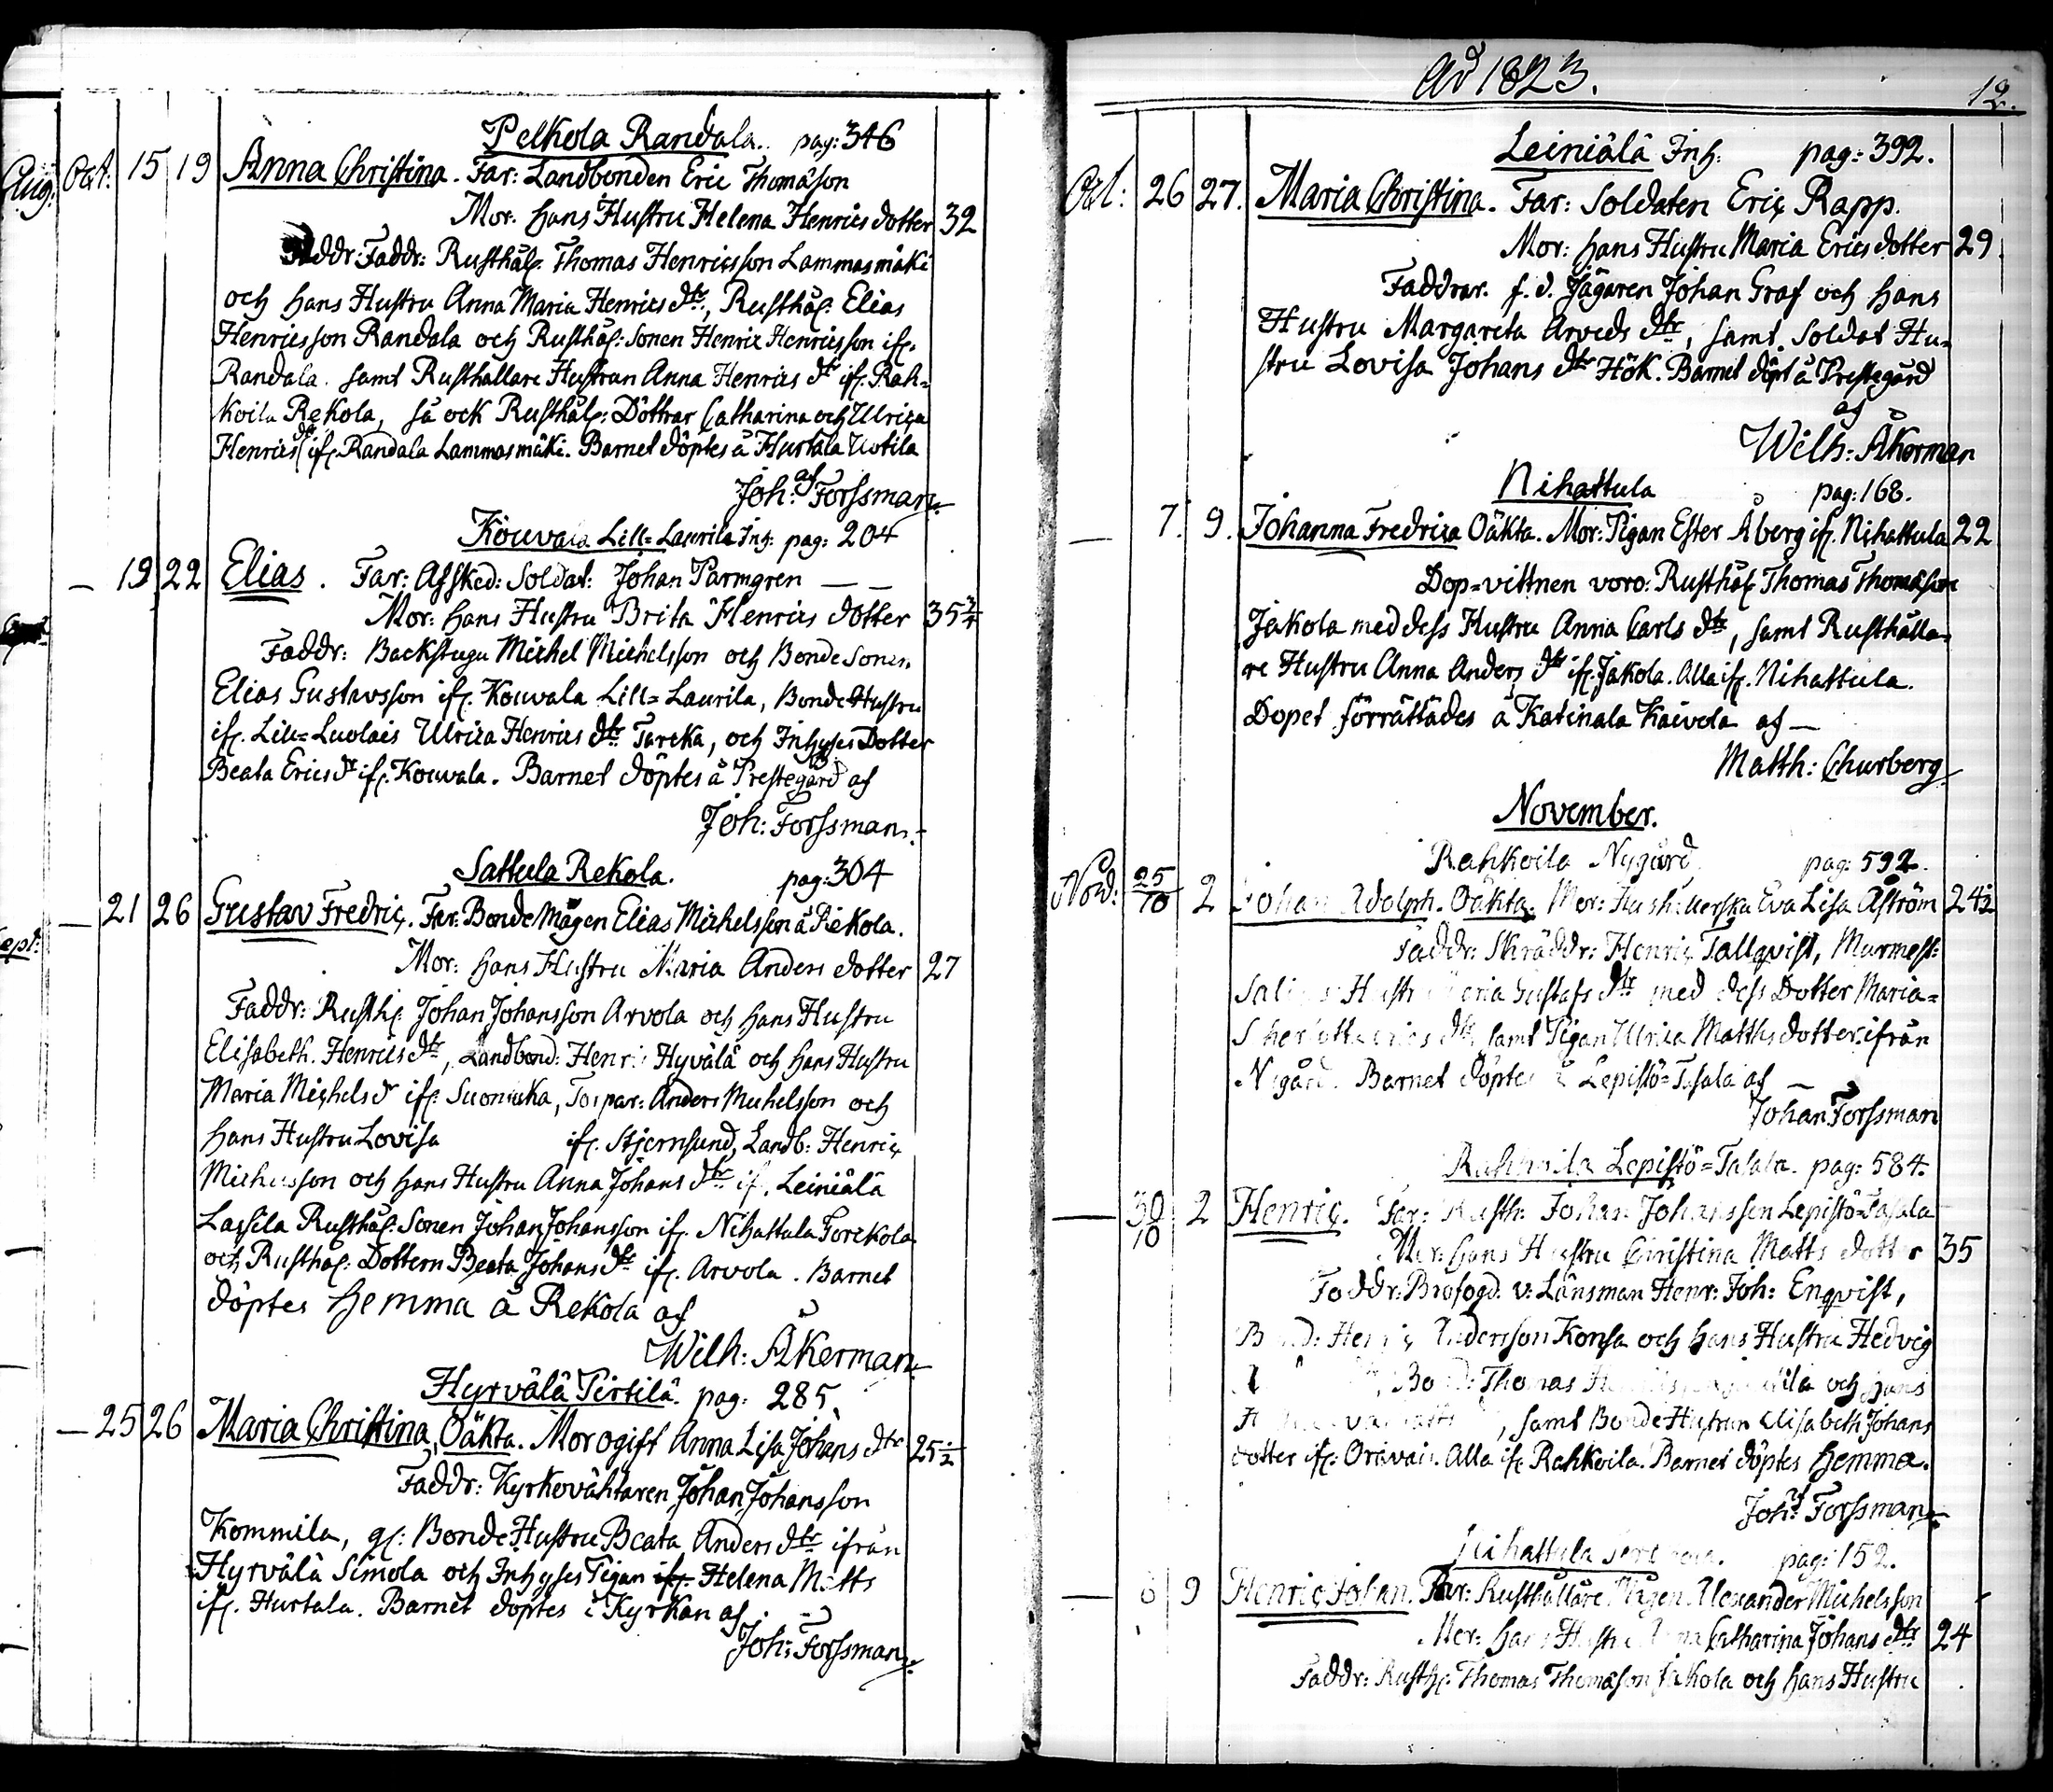 Pelkola Randala. pag: 346
Aug: Oct: 15 19 Anna Christina. Far: Landbonden Eric Thomasson
Mor: hans Hustru Helena Henrics dotter 32
Faddr: Rusthål. Thomas Henricsson Lammasmäki
och hans Hustru Anna Maria Henrics dtr, Rusthål: Elias
Henricsson Randala och Rusthål: Sonen Henric Henricsson ifr.
Randala. samt Rusthållare Hustrun Anna Henrics dr ifr. Rah-
koila Rekola, så ock Rusthål: Döttrar Catharina och Ulrica
Henrics dr ifr. Randala Lammasmäki. Barnet döptes å Hurtala Uotila
af
Joh: Forssman
Kouvala Lill-Laurila Inh: pag: 204
— 19 22 Elias. Far: Afsked: Soldat: Johan Parmgren — —
Mor: hans Hustru Brita Henrics dotter 35 3/4
Faddr: Backstugu Michel Michelsson och Bonde Sonen
Elias Gustavsson ifr. Kouvala Lill-Laurila, Bonde Hustru
ifr. Lill-Luolais Ulrica Henrics dtr Tareka, och Inhyses Dotter
Beata Erics dr ifr. Kouvala. Barnet döptes å Prestegård af
Joh: Forssman.
Sattula Rekola. pag: 304
— 21 26 Gustav Fredric. Far: Bonde Mågen Elias Michelsson å Rekola.
Sept:
Mor: hans Hustru Maria Anders dotter 27
Faddr: Rusth: Johan Johansson Arvola och hans Hustru
Elisabeth. Henrics dtr, Landbond: Henric Hyvälä och hans Hustru
Maria Michels dr ifr. Suoniska, Torpar: Anders Michelsson och
hans Hustru Lovisa ifr. Stjernsund, Landb: Henric
Michelsson och hans Hustru Anna Johans dtr if. Leiniälä
Lassila Rusthål: Sonen Johan Johansson ifr. Nihattula Torekola
och Rusthål: Dottern Beata Johans dr ifr. Arvola. Barnet
döptes hemma å Rekola af
Wilh: Åkerman
Hyrvälä Pirtilä. pag: 285.
— 25 26 Maria Christina, Oäkta. Mor ogift Anna Lisa Johans dtr 25 1/2
Faddr: Kyrkovähtaren Johan Johansson
Kommila, gl: Bonde Hustru Beata Anders dtr ifrån
Hyrvälä Simola och Inhyses Pigan ifr. Helena Matts
ifr. Hurtala. Barnet döptes i Kyrkan af
Joh: Forssman
Ao 1823.
12.
Leiniälä Inh: pag: 392.
Oct: 26 27. Maria Christina. Far: Soldaten Eric Rapp.
Mor: hans Hustru Maria Erics dotter 29
Faddrar. f. d. Jägaren Johan Graf och hans
Hustru Margareta Arveds dtr, samt Soldat Hu-
stru Lovisa Johans dtr Hök. Barnet döpt å Prestegård
af
Wilh: Åkerman
Nihattula pag: 168.
— 7. 9. Johanna Fredrica Oäkta. Mor: Pigan Ester Åberg ifr. Nihattula 22
Dop-vittnen voro: Rusthål Thomas Thomasson
Jakola med dess Hustru Anna Carls dtr, samt Rusthålla-
re Hustru Anna Anders dtr ifr. Jakola. Alla ifr. Nihattula.
Dopet förrättades å Katinala Kaivola af —
Matth: Churberg
November.
Rahkoila Nygård. pag: 592.
Nov: 25/10 2 Johan Adolph. Oäkta. Mor: Hushåuerska Eva Lisa Åström 24 1/2
Faddr: Skräddr: Henric Tallqvist, Murmest:
Hustru Maria Gustafs dtr med dess Dotter Maria-
samt Pigan Ulrica Matths dotter ifrån
Nygård. Barnet döptes å Lepistö-Tasala af —
Johan Forssman
Rahkoila Lepistö-Tasala. pag: 584.
— 30/10 2 Henric. Far: Rusth: Johan Johansson Lepistö-Tasala
Mor: hans Hustru Christina Matts dotter 35
Faddr: Brofogd. v: Länsman Henr: Joh: Enqvist,
Bond: Henric Andersson Konsa och hans Hustru Hedvig
Bond: Thomas och hans
, samt Bonde Hustrun Elisabeth Johans
dotter ifr. Alla ifr. Rahkoila. Barnet döptes hemma.
af
Joh: Forssman
Nihattula pag: 152.
— 6 9 Henric Johan. Far: Rusthållare Mågen Alexander Michelsson
Mor: hans Hustru Anna Catharina Johans dtr 24
Faddr: Rusth: Thomas Thomasson Jakola och hans Hustru